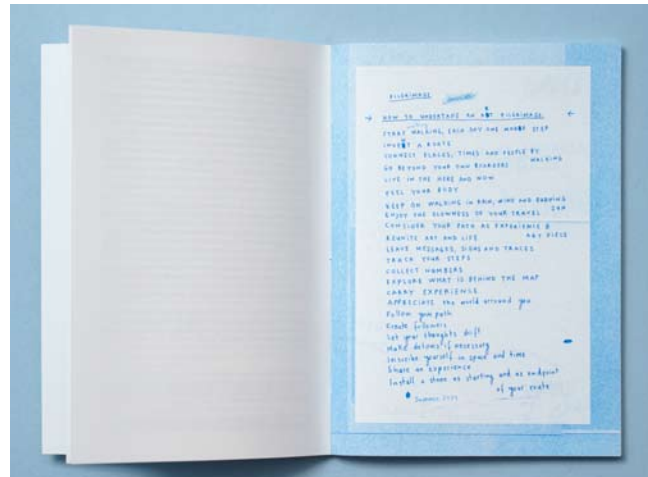 PILGRIMAGE
→ HOW TO UNDERTAKE AN ART PILGRIMAGE ←
START WALKING, EACH DAY ONE MORE STEP
INVENT A ROUTE
CONNECT PLACES, TIMES AND PEOPLE BY WALKING
GO BEYOND YOUR OWN BOARDERS
LIVE IN THE HERE AND NOW
FEEL YOUR BODY
KEEP ON WALKING IN RAIN, WIND AND BURNING SUN
ENJOY THE SLOWNESS OF YOUR TRAVEL
CONSIDER YOUR PATH AS EXPERIENCE & ART PIECE
REUNITE ART AND LIFE
LEAVE MESSAGES, SIGNS AND TRACES
TRACK YOUR STEPS
COLLECT NUMBERS
EXPLORE WHAT IS BEHIND THE MAP
CARRY EXPERIENCE
APPRECIATE the world arround you
Follow your path
Create followers
Let your thoughts drift
Make detours if necessary
Inscribe yourself in space and time
Share an experience
Install a stone as starting and as endpoint
of your route
Summer